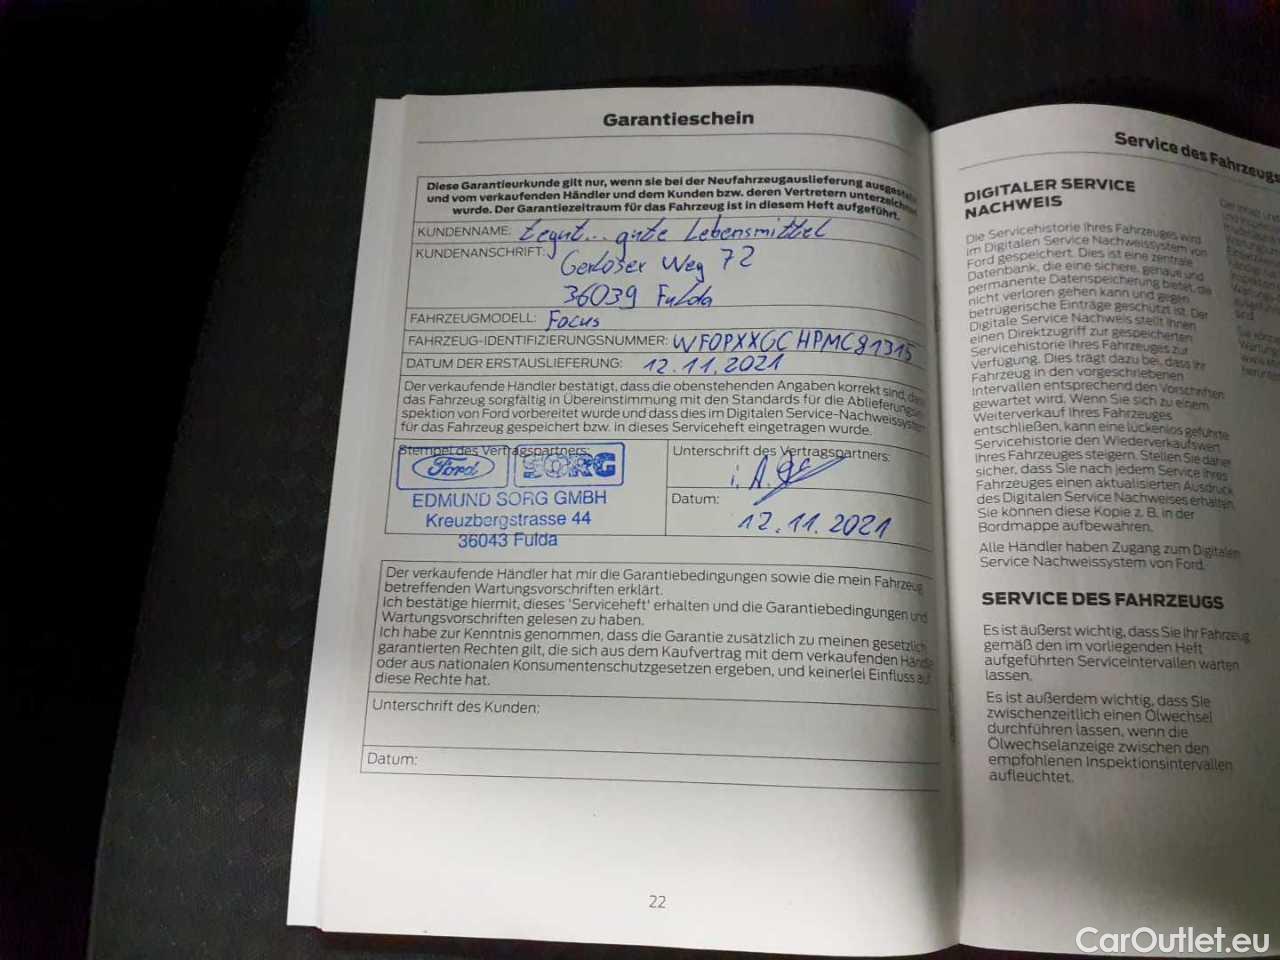 Garantieschein
Diese Garantieurkunde gilt nur, wenn sie bei der Neufahrzeugauslieferung
und vom verkaufenden Händler und dem Kunden bzw. deren Vertretern
wurde. Der Garantiezeitraum für das Fahrzeug ist in diesem Heft aufgeführt.
KUNDENNAME: tegut... gute Lebensmittel
KUNDENANSCHRIFT: Gerloser Weg 72
36039 Fulda
FAHRZEUGMODELL: Focus
FAHRZEUG-IDENTIFIZIERUNGSNUMMER: WF0PXXGCHPMC81315
DATUM DER ERSTAUSLIEFERUNG: 12.11.2021
Der verkaufende Händler bestätigt, dass die obenstehenden Angaben korrekt sind, dass
das Fahrzeug sorgfältig in Übereinstimmung mit den Standards für die Ablieferungsin
spektion von Ford vorbereitet wurde und dass dies im Digitalen Service-Nachweissystem
für das Fahrzeug gespeichert bzw. in dieses Serviceheft eingetragen wurde.
Stempel des Vertragspartners:
Ford SORG
EDMUND SORG GMBH
Kreuzbergstrasse 44
36043 Fulda
Unterschrift des Vertragspartners:
i. A.
Datum:
12.11.2021
Der verkaufende Händler hat mir die Garantiebedingungen sowie die mein Fahrzeug
betreffenden Wartungsvorschriften erklärt.
Ich bestätige hiermit, dieses 'Serviceheft' erhalten und die Garantiebedingungen und
Wartungsvorschriften gelesen zu haben.
Ich habe zur Kenntnis genommen, dass die Garantie zusätzlich zu meinen gesetzlich
garantierten Rechten gilt, die sich aus dem Kaufvertrag mit dem verkaufenden Händle
oder aus nationalen Konsumentenschutzgesetzen ergeben, und keinerlei Einfluss auf
diese Rechte hat.
Unterschrift des Kunden:
Datum:
22
Service des Fahrzeugs
DIGITALER SERVICE
NACHWEIS
Die Servicehistorie Ihres Fahrzeuges wird
im Digitalen Service Nachweissystem von
Ford gespeichert. Dies ist eine zentrale
Datenbank, die eine sichere, genaue und
permanente Datenspeicherung bietet, die
nicht verloren gehen kann und gegen
betrügerische Einträge geschützt ist. Der
Digitale Service Nachweis stellt Ihnen
einen Direktzugriff zur gespeicherten
Servicehistorie Ihres Fahrzeuges zur
Verfügung. Dies trägt dazu bei, dass Ihr
Fahrzeug in den vorgeschriebenen
Intervallen entsprechend den Vorschriften
gewartet wird. Wenn Sie sich zu einem
Weiterverkauf Ihres Fahrzeuges
entschließen, kann eine lückenlos geführte
Servicehistorie den Wiederverkaufswert
Ihres Fahrzeuges steigern. Stellen Sie daher
sicher, dass Sie nach jedem Service Ihres
Fahrzeuges einen aktualisierten Ausdruck
des Digitalen Service Nachweises erhalten.
Sie können diese Kopie z. B. in der
Bordmappe aufbewahren.
Alle Händler haben Zugang zum Digitalen
Service Nachweissystem von Ford.
SERVICE DES FAHRZEUGS
Es ist äußerst wichtig, dass Sie Ihr Fahrzeug
gemäß den im vorliegenden Heft
aufgeführten Serviceintervallen warten
lassen.
Es ist außerdem wichtig, dass Sie
zwischenzeitlich einen Ölwechsel
durchführen lassen, wenn die
Ölwechselanzeige zwischen den
empfohlenen Inspektionsintervallen
aufleuchtet.
CarOutlet.eu